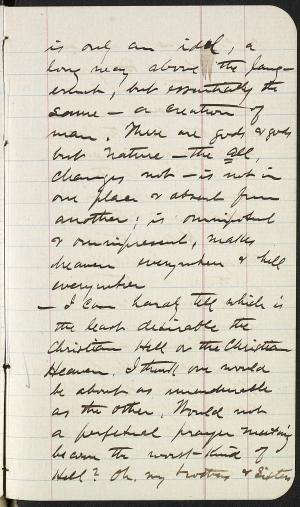 is only an idol, a
long way above the
erent, but essentially the
same – a creation of
man. There are gods & gods
but Nature – the all,
changes not – is not in
one place & absent from
another; is omnipotent
& omnipresent, makes
heaven everywhere & hell
everywhere
– I can hardly tell which is
the least desirable the
Christian Hell or the Christian
Heaven. I think one would
be about as unendurable
as the other. Would not
a perpetual prayer meeting
become the worst kind of
Hell? Oh, my brothers & sisters